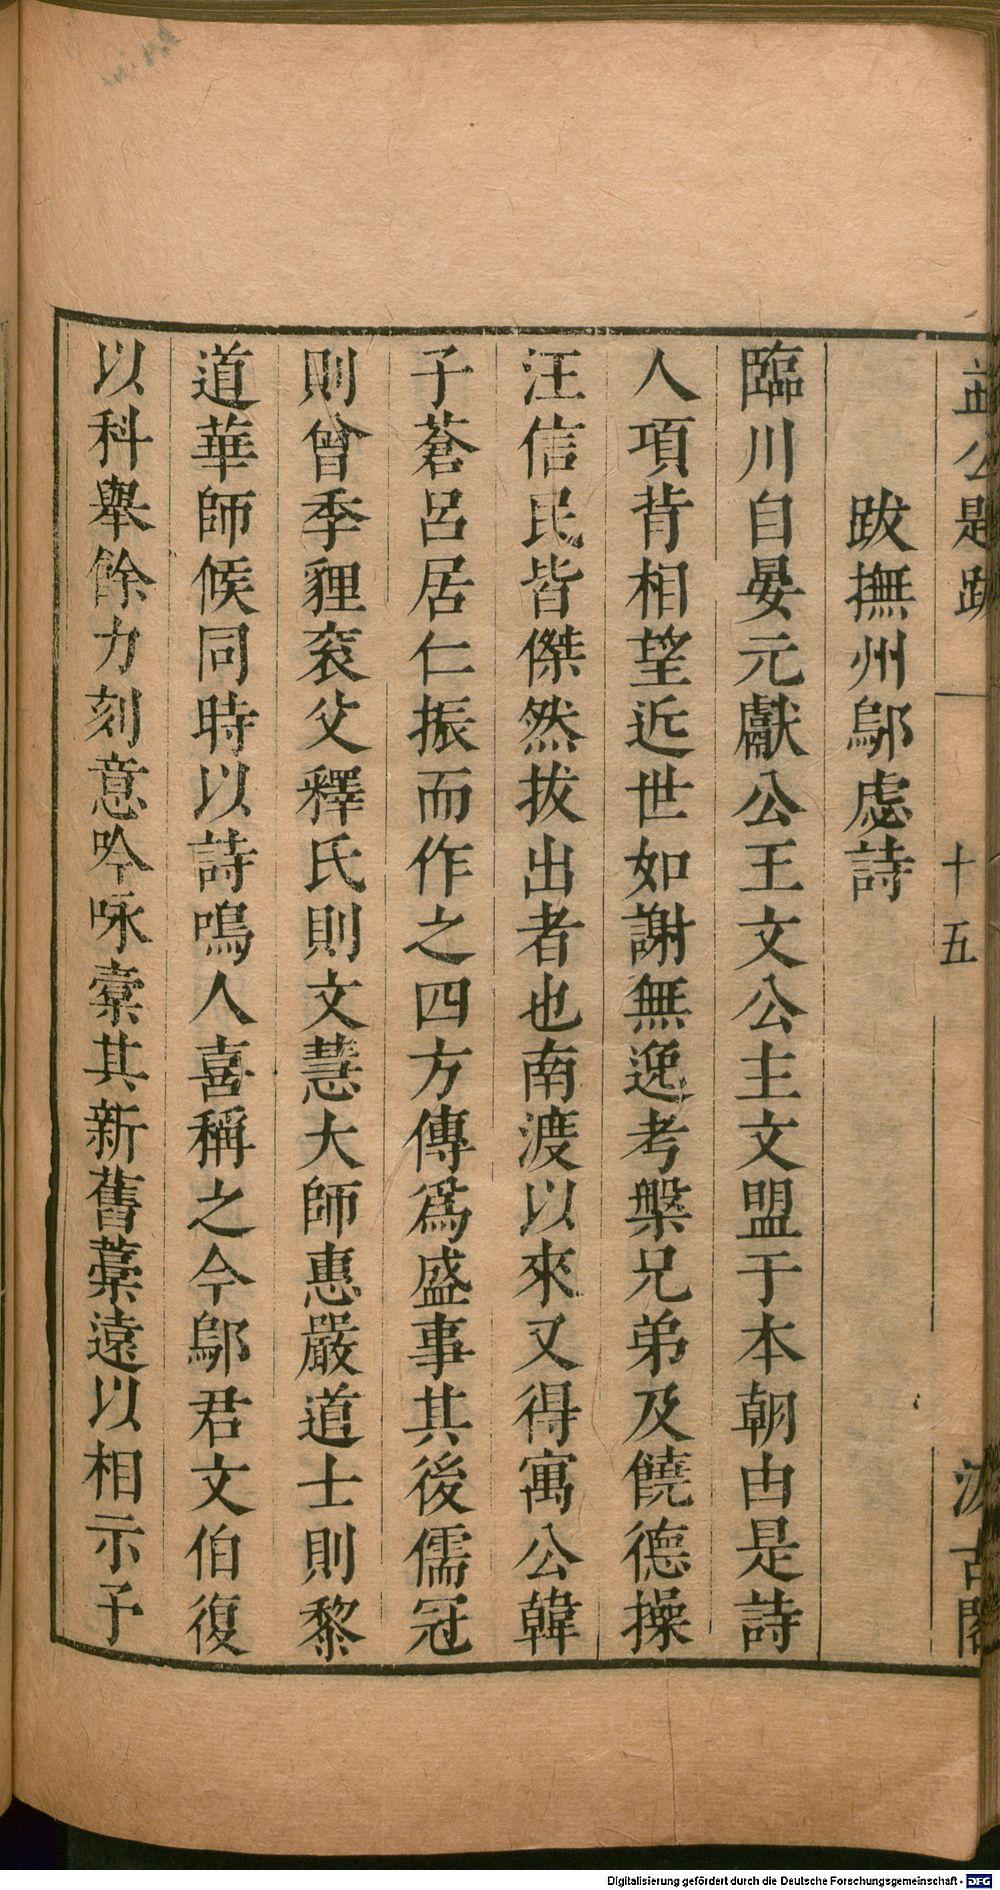 益公題跋 十五 汲古閣
跋撫州鄔虙詩
臨川自晏元獻公王文公主文盟于本朝由是詩
人項背相望近世如謝無逸考槃兄弟及饒德操
汪信民皆傑然拔出者也南渡以來又得寓公韓
子蒼呂居仁振而作之四方傳爲盛事其後儒冠
則曾季貍裘父釋氏則文慧大師惠嚴道士則黎
道華師候同時以詩鳴人喜稱之今鄔君文伯復
以科舉餘力刻意吟咏槖其新舊藁遠以相示予
Digitalisierung gefördert durch die Deutsche Forschungsgemeinschaft - DFG